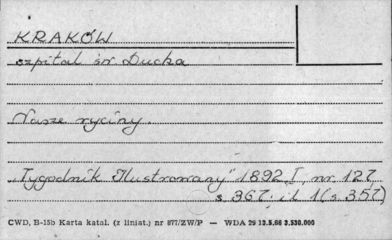 KRAKÓW
szpital św. Ducha
Nasze ryciny.
„Tygodnik Ilustrowany" 1892 I, nr. 127
s. 367; il. 1 (s. 357)
CWD, B-15b Karta katal. (z liniat.) nr 877/ZW/P — WDA 29 13.5.66 3.530.000